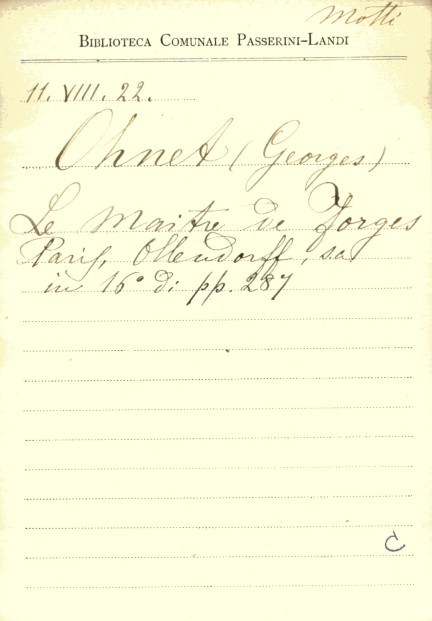 Motti
BIBLIOTECA COMUNALE PASSERINI-LANDI
11. VIII. 22.
Ohnet (Georges)
Le maitre de Forges
Paris, Ollendorff, s.a
in 16° di pp. 287
C